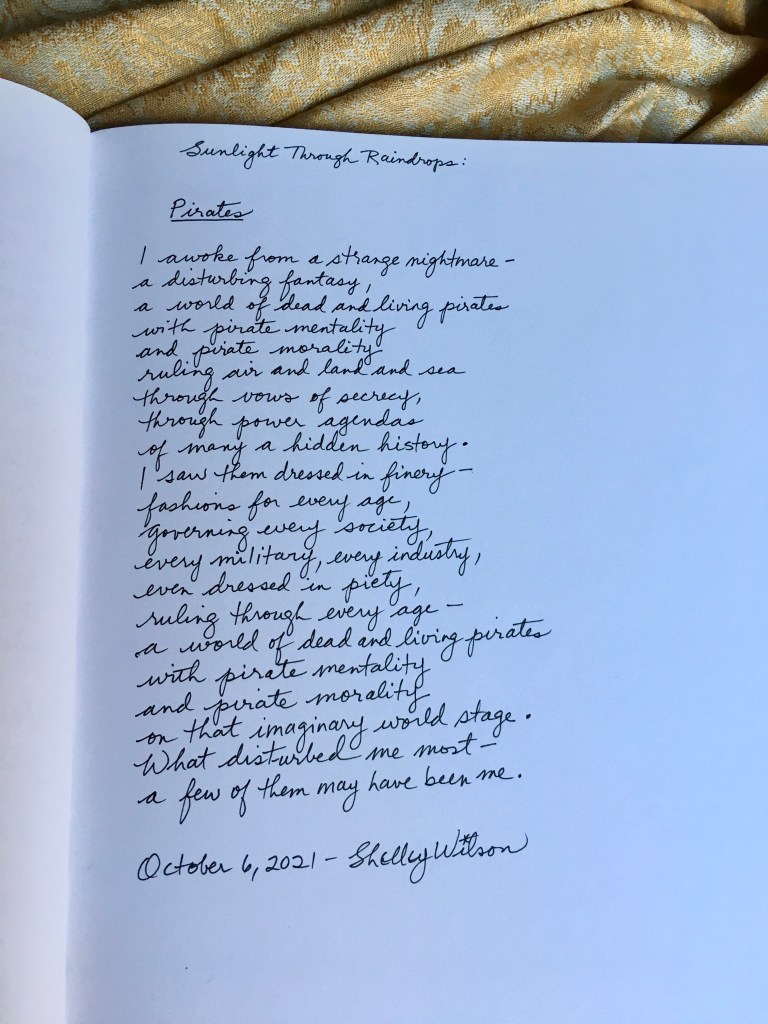 Sunlight Through Raindrops:
Pirates
I awoke from a strange nightmare –
a disturbing fantasy,
a world of dead and living pirates
with pirate mentality
and pirate morality
ruling air and land and sea
through vows of secrecy,
through power agendas
of many a hidden history.
I saw them dressed in finery –
fashions for every age,
governing every society,
every military, every industry,
even dressed in piety,
ruling through every age –
a world of dead and living pirates
with pirate mentality
and pirate morality
on that imaginary world stage.
What disturbed me most –
a few of them may have been me.
October 6, 2021 – Shelley Wilson